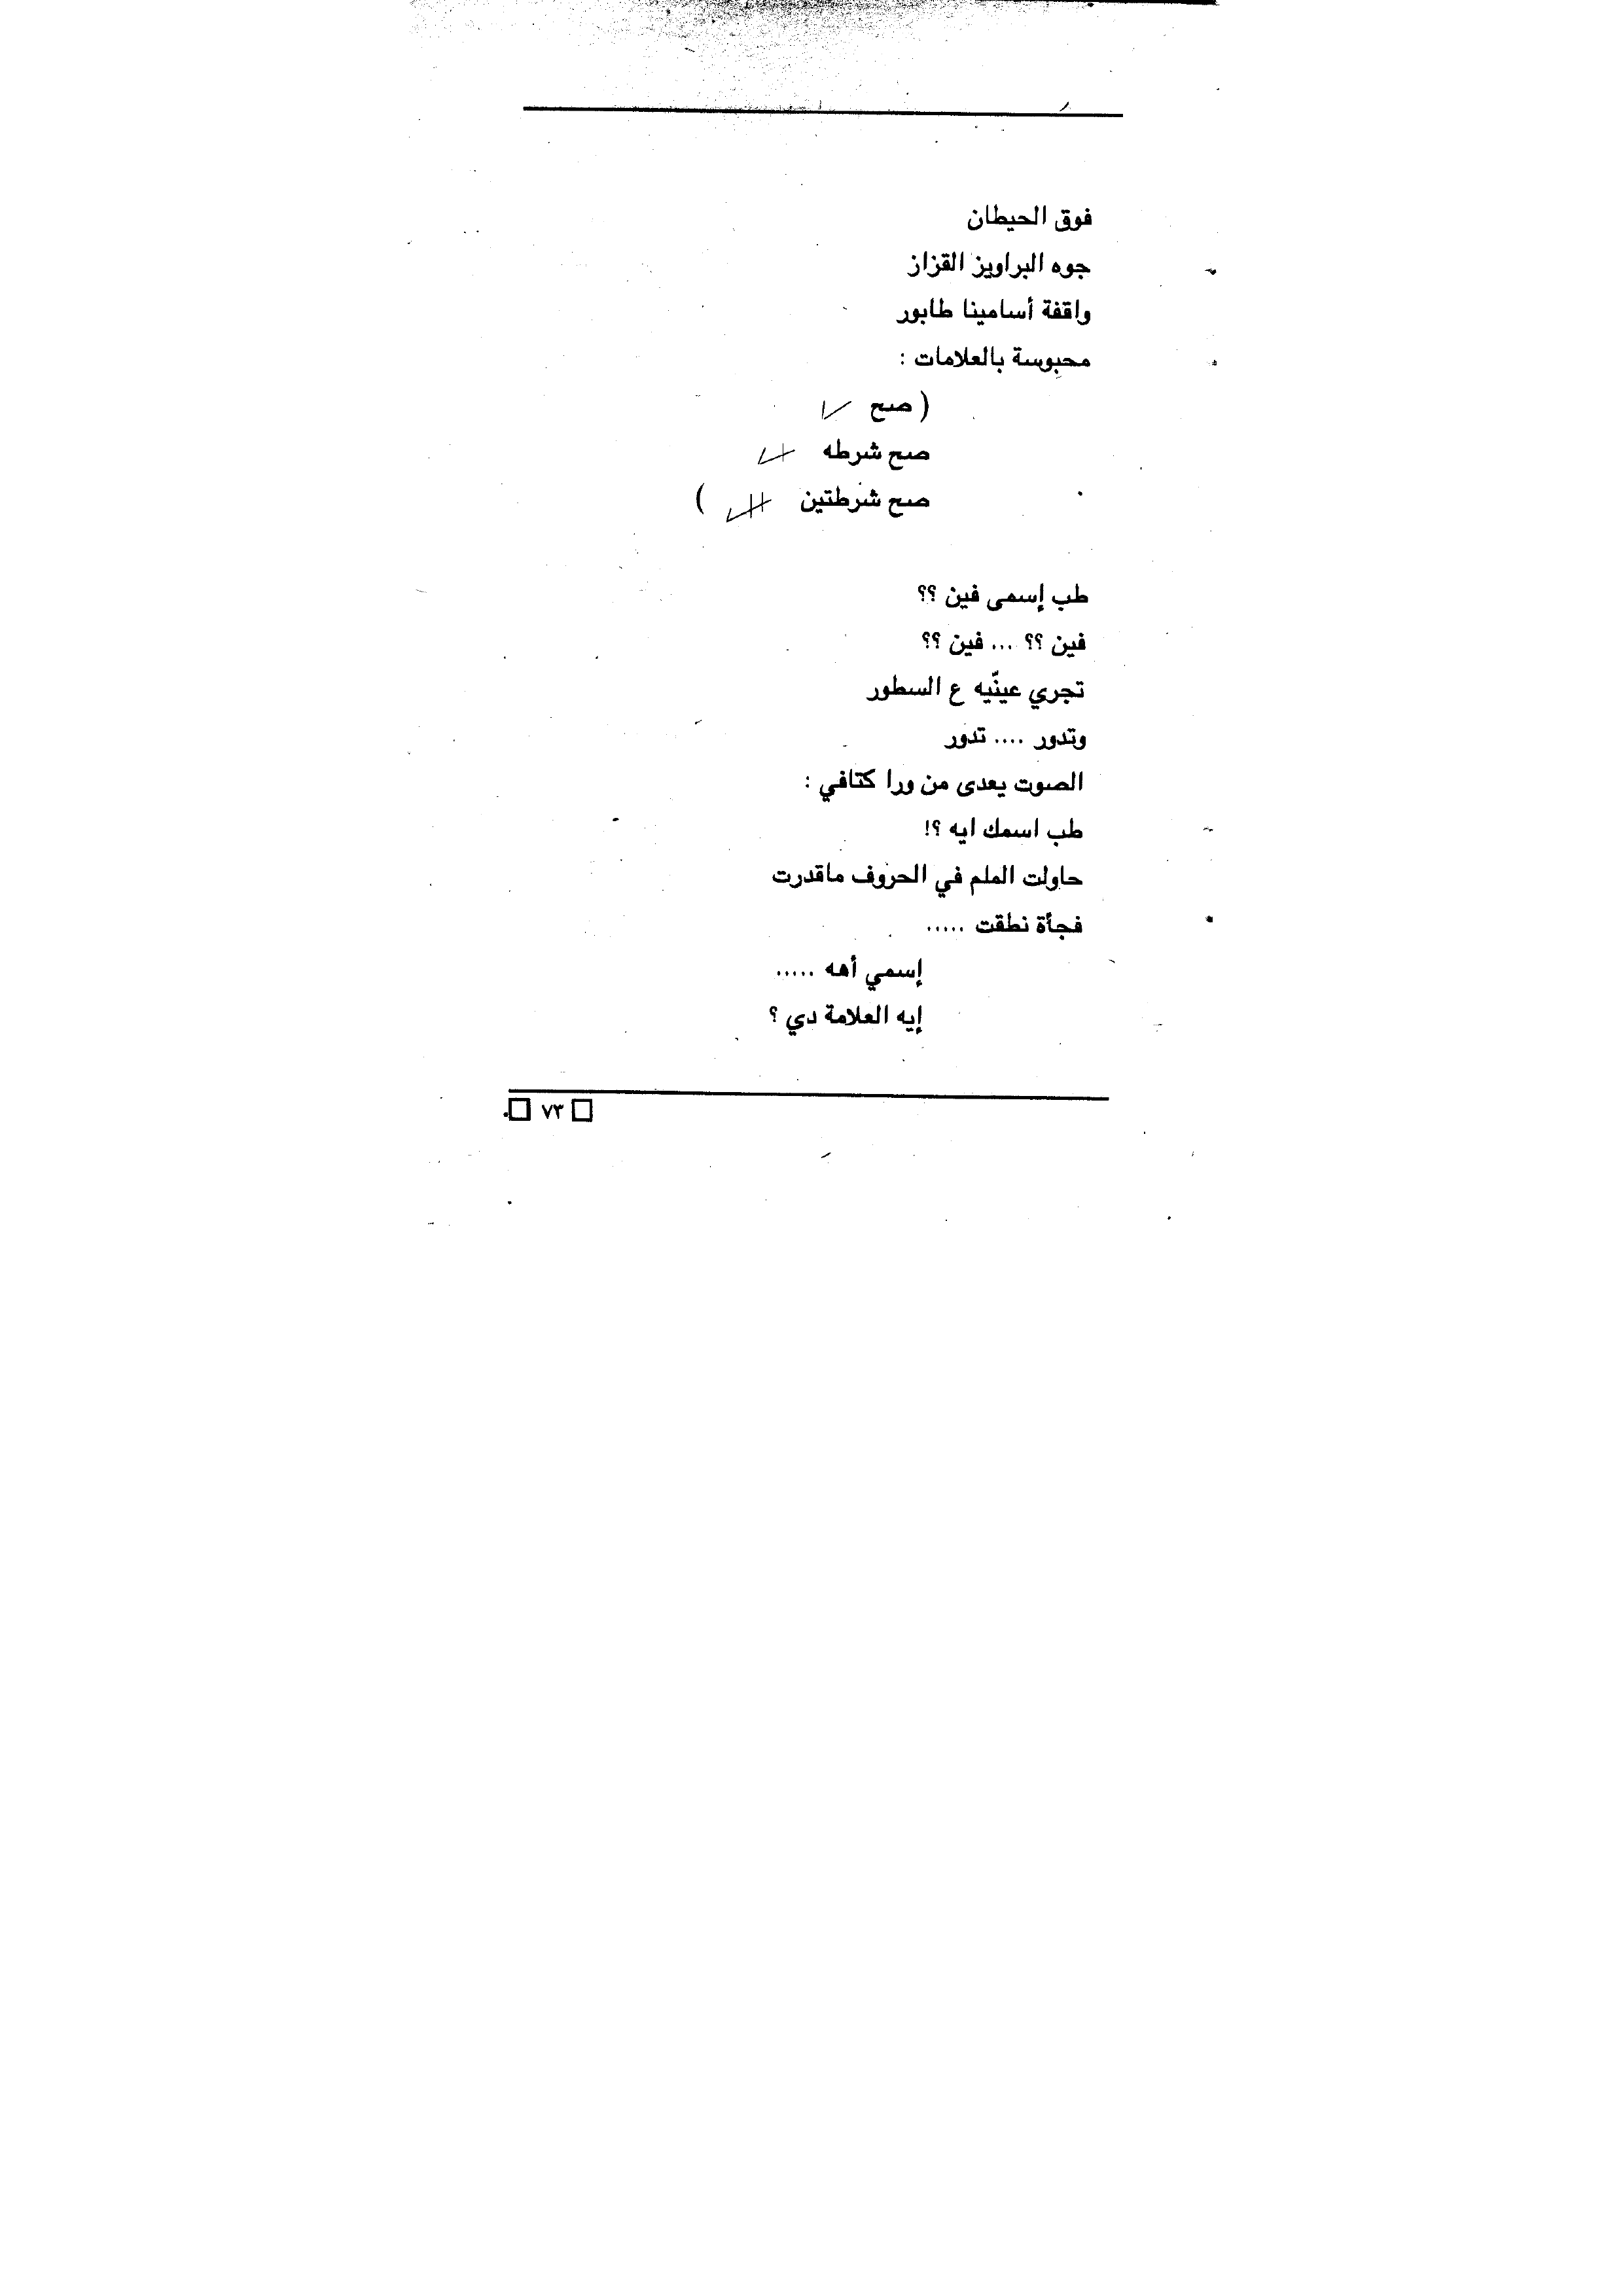 فوق الحيطان
جوه البراويز القزاز
واقفة أسامينا طابور
محبوسة بالعلامات :
( صح ✓
صح شرطه
صح شرطتين )
طب إسمى فين ؟؟
فين ؟؟ ... فين ؟؟
تجري عينّيه ع السطور
وتدور .... تدور
الصوت يعدى من ورا كتافي :
طب اسمك ايه ؟!
حاولت الملم في الحروف ماقدرت
فجأة نطقت .....
إسمي أهه .....
إيه العلامة دي ؟
٧٣